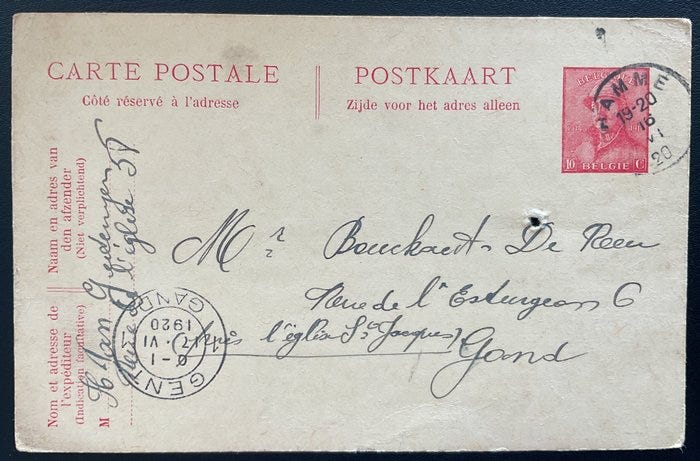 CARTE POSTALE
Côté réservé à l'adresse
POSTKAART
Zijde voor het adres alleen
BELGIQUE
10 BELGIE C
TAMME
19-20
16
VI
20
Naam en adres van
den afzender
(Niet verplichtend)
Nom et adresse de
l'expéditeur
(Indication facultative)
M
Van
de l'église 58
Mr Bouckaert-De Reu
Rue de l'Esturgeon 6
(près l'église St Jacques)
Gand
GENT 1
0-1
17·VI
1920
GAND